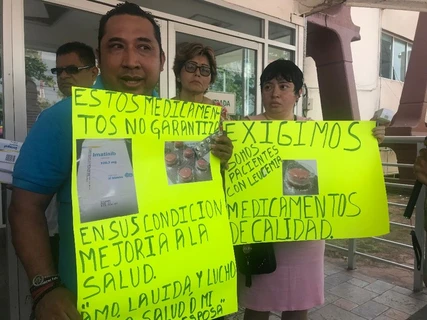 ESTOS MEDICAMEN
TOS NO GARANTIZA
EN SUS CONDICION
MEJORIA A LA
SALUD.
"AMO LA VIDA Y LUCHO
SALUD O MI
ESPOSA"
EXIGIMOS
SOMOS
PACIENTES
CON LEUCEMIA
MEDICAMENTOS
DE CALIDAD.